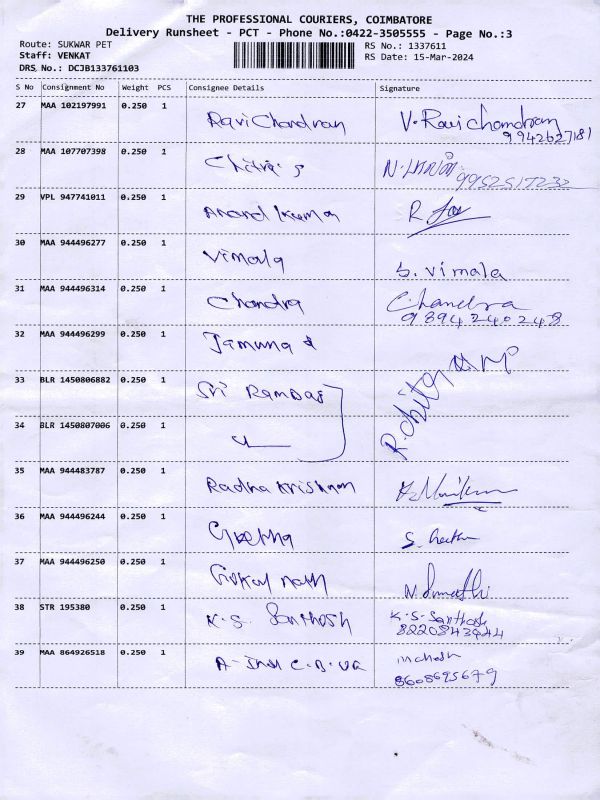 THE PROFESSIONAL COURIERS, COIMBATORE
Delivery Runsheet - PCT - Phone No.:0422-3505555 - Page No.:3
Route: SUKWAR PET
RS No.: 1337611
Staff: VENKAT
RS Date: 15-Mar-2024
DRS No.: DCJB133761103
S No Consignment No Weight PCS Consignee Details Signature
27 MAA 102197991 0.250 1 Ravi Chandran V. Ravichandran
9942627181
28 MAA 107707398 0.250 1 Chitra S
29 VPL 947741011 0.250 1 Anand Kumar R
30 MAA 944496277 0.250 1 Vimala S. Vimala
31 MAA 944496314 0.250 1 Chandra Chandra
9894240248
32 MAA 944496299 0.250 1 Jamuna
33 BLR 1450806882 0.250 1 Sri Ramdas
34 BLR 1450807006 0.250 1
35 MAA 944483787 0.250 1 Radha Krishnan
36 MAA 944496244 0.250 1 Geetha S.
37 MAA 944496250 0.250 1 Gokul nath N. Sumathi
38 STR 195380 0.250 1 K.S. Santhosh K.S. Santhosh
8220843944
39 MAA 864926518 0.250 1
8608695679